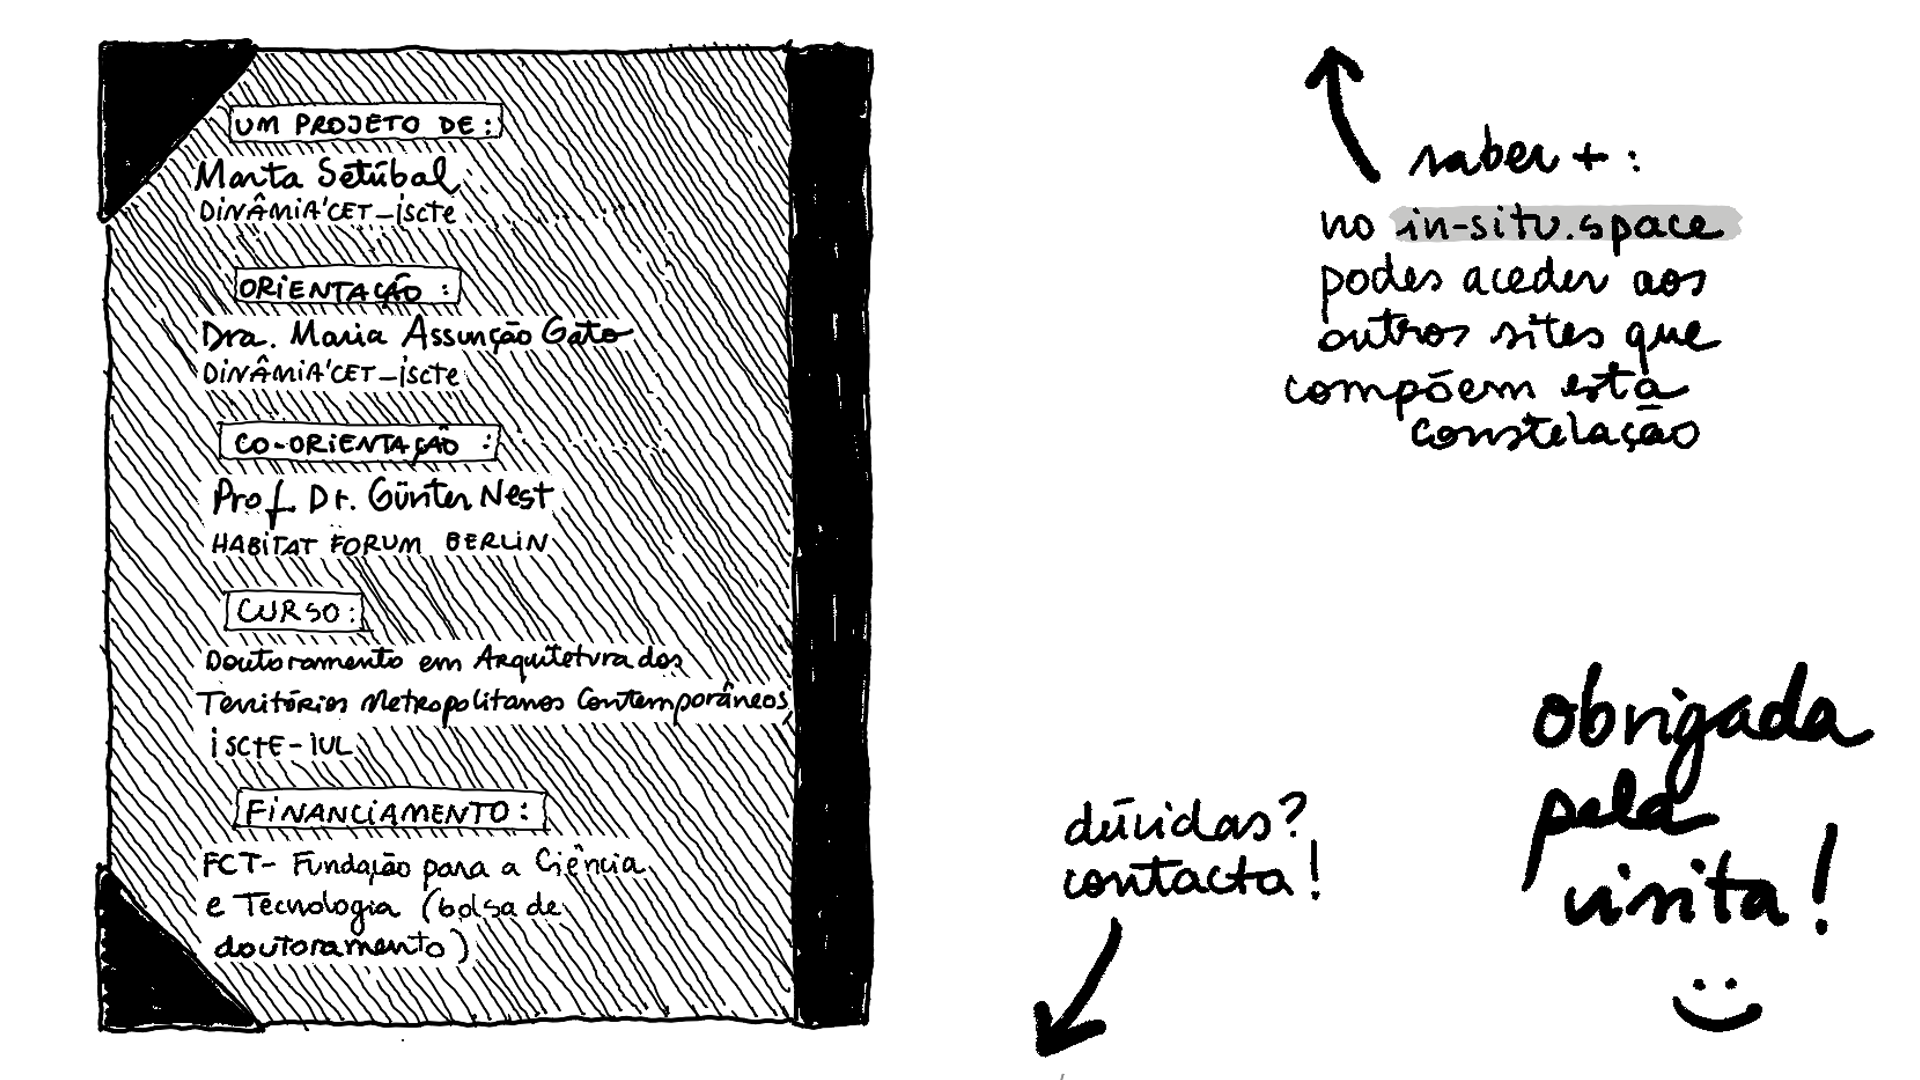 UM PROJETO DE:
Marta Setúbal
DINÂMIA'CET_iscte
ORIENTAÇÃO:
Dra. Maria Assunção Gato
DINÂMIA'CET_iscte
CO-ORIENTAÇÃO:
Prof. Dr. Günter Nest
HABITAT FORUM BERLIN
CURSO:
Doutoramento em Arquitetura dos
Territórios Metropolitanos Contemporâneos
ISCTE-IUL
FINANCIAMENTO:
FCT- Fundação para a Ciência
e Tecnologia (bolsa de
doutoramento)
saber +:
no in-situ.space
podes aceder aos
outros sites que
compõem esta
constelação
dúvidas?
contacta!
obrigada
pela
visita!